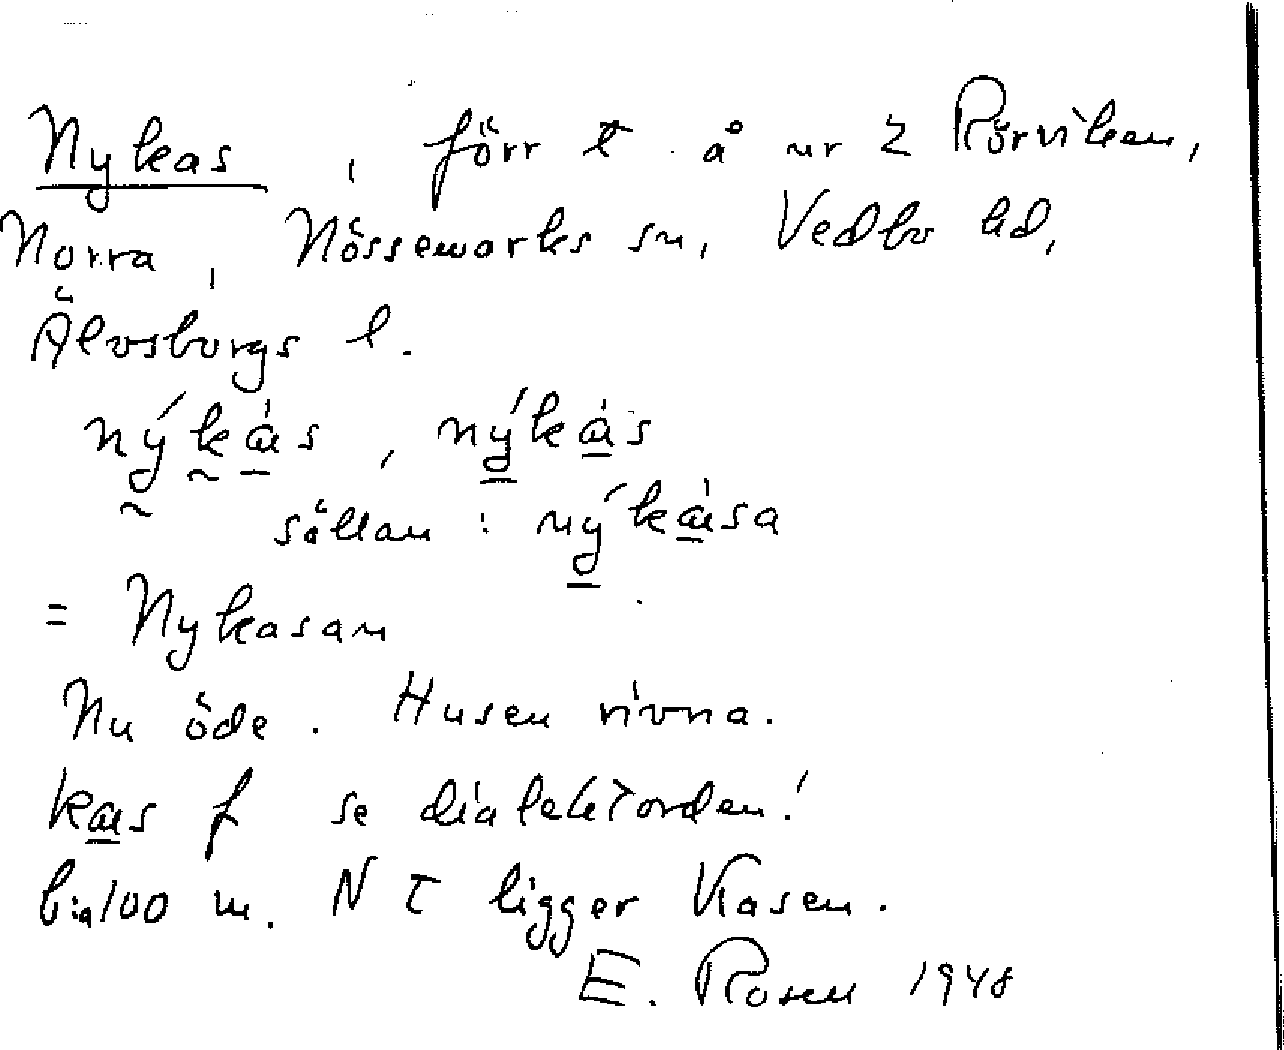 Nykas, förr t. å nr 2 Rörviken,
Norra, Nössemarks sn, Vedbo hd,
Älvsborgs l.
nýkàs, nýkàs
sällan: nýkàsa
= Nykasan
Nu öde. Husen rivna.
kas f se dialektorden!
100 m. N t ligger Kasen.
E. Rosen 1948